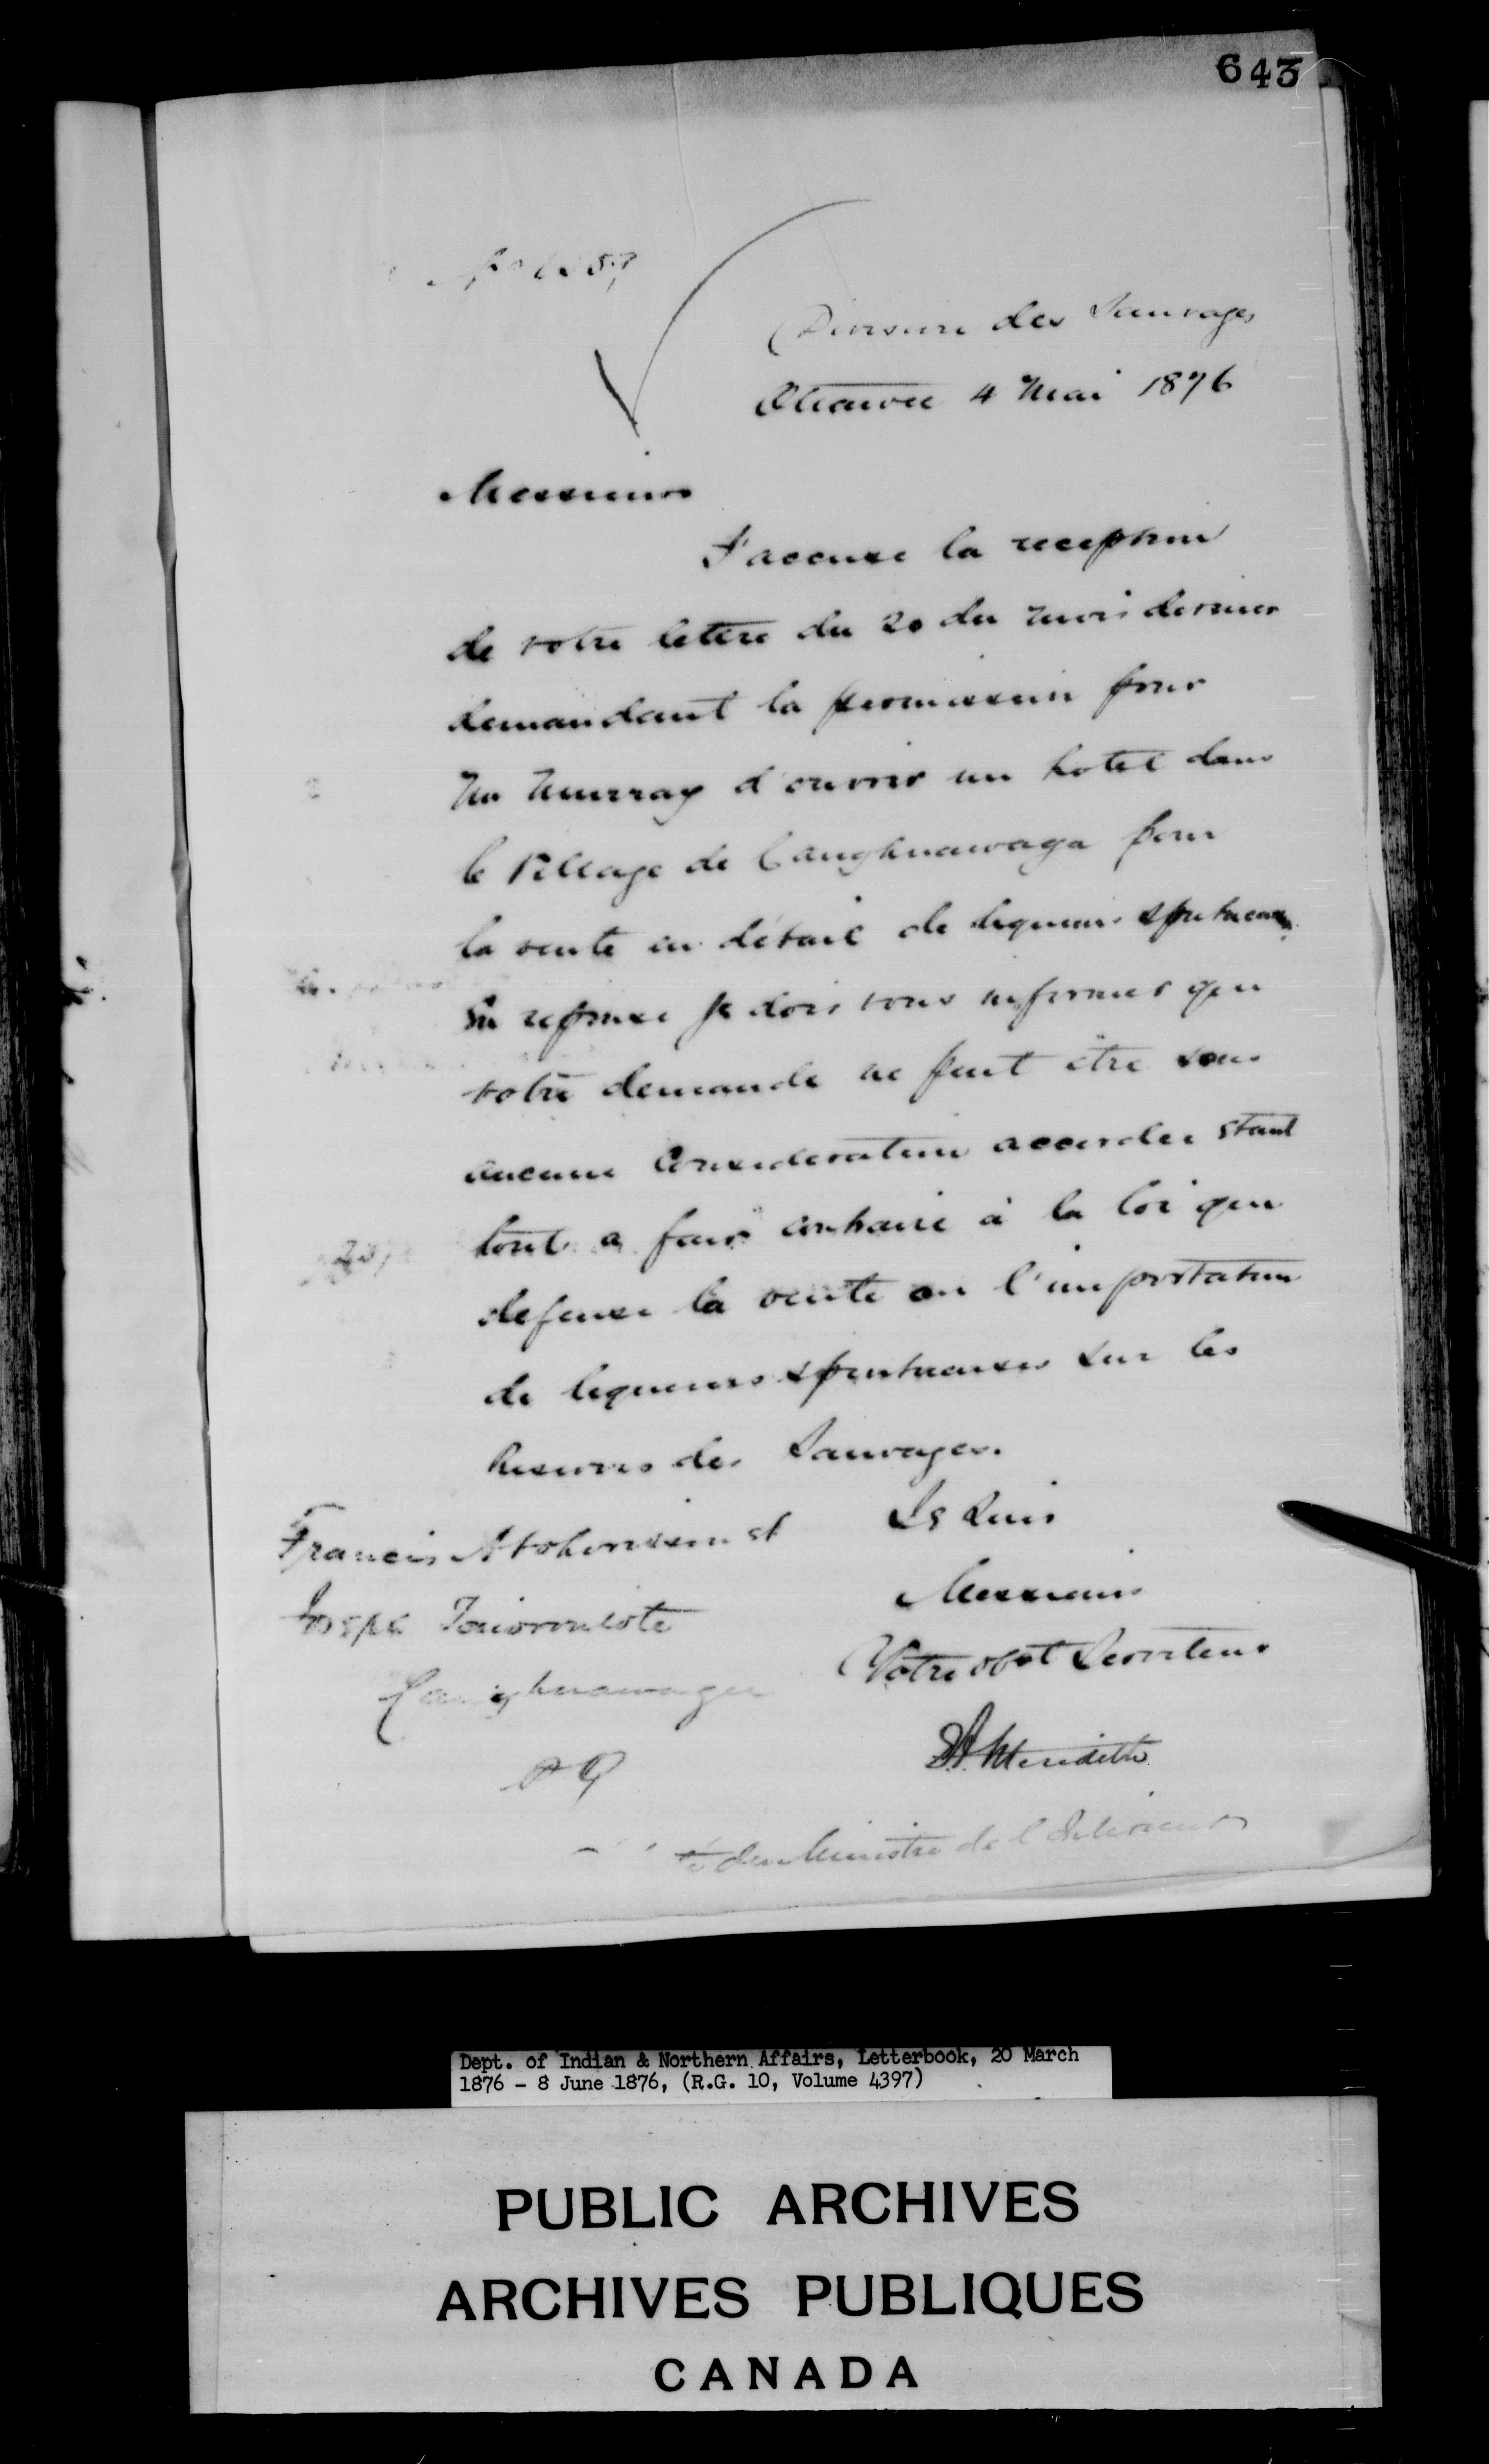 643
Division des Sauvages
Ottawa 4 Mai 1876
Messieurs
J'accuse la reception
de votre lettre du 20 du mois dernier
demandant la permission pour
Mr Murray d'ouvrir un hotel dans
le Village de Caughnawaga pour
la vente en détail de liqueurs spiritueuses
En reponse je dois vous informer que
votre demande ne peut être sous
aucune Consideration accordee étant
tout a fait contraire à la loi que
defense la vente ou l'importation
de liqueurs spiritueuses sur les
Reserves des Sauvages.
Je suis
Messieurs
Votre obt Serviteur
Meredith
du Ministre de l'Interieur
Francis
Caughnawaga
P Q
Dept. of Indian & Northern Affairs, Letterbook, 20 March
1876 - 8 June 1876, (R.G. 10, Volume 4397)
PUBLIC ARCHIVES
ARCHIVES PUBLIQUES
CANADA